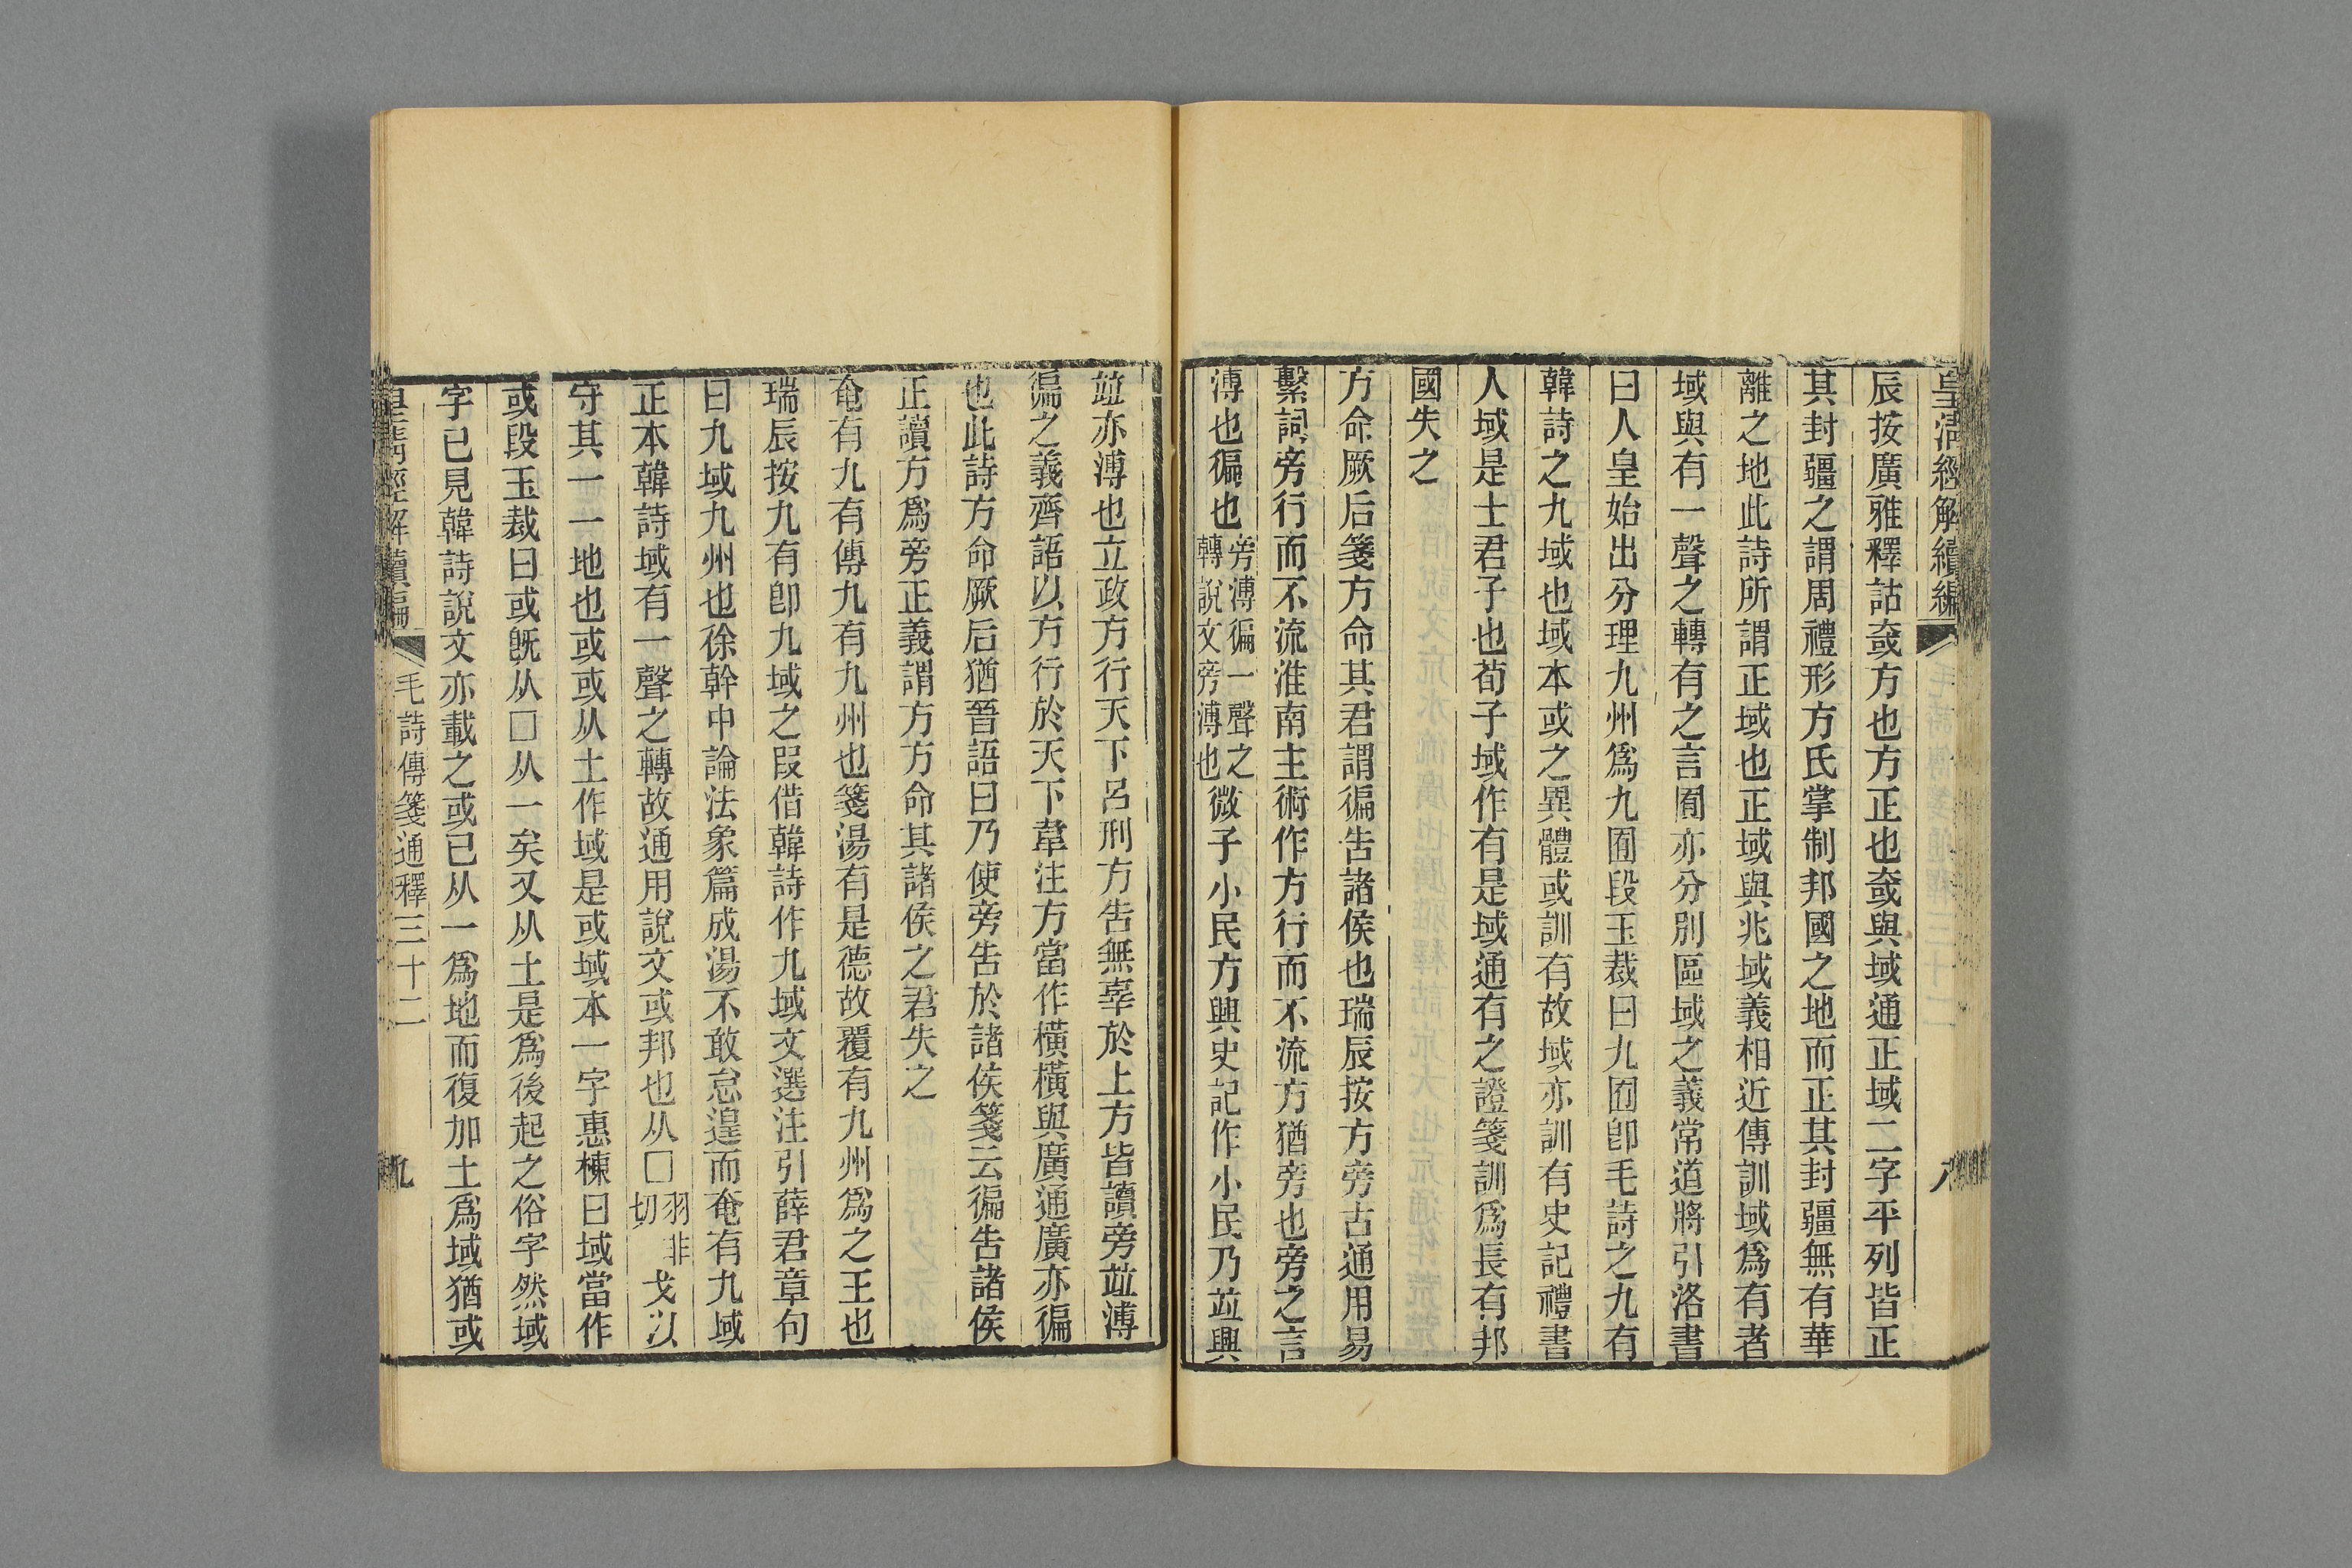 皇清經解續編
八
辰按廣雅釋詁或方也方正也或與域通正域二字平列皆正
其封疆之謂周禮形方氏掌制邦國之地而正其封疆無有華
離之地此詩所謂正域也正域與兆域義相近傳訓域爲有者
域與有一聲之轉有之言囿亦分別區域之義常道將引洛書
曰人皇始出分理九州爲九囿段玉裁曰九囿卽毛詩之九有
韓詩之九域也域本或之異體或訓有故域亦訓有史記禮書
人域是士君子也荀子域作有是域通有之證箋訓爲長有邦
國失之
方命厥后箋方命其君謂徧告諸侯也瑞辰按方旁古通用易
繫詞旁行而不流淮南主術作方行而不流方猶旁也旁之言
溥也徧也旁溥徧一聲之轉說文旁溥也微子小民方興史記作小民乃竝興
竝亦溥也立政方行天下呂刑方告無辜於上方皆讀旁竝溥
徧之義齊語以方行於天下韋注方當作橫橫與廣通廣亦徧
也此詩方命厥后猶晉語曰乃使旁告於諸侯箋云徧告諸侯
正讀方爲旁正義謂方方命其諸侯之君失之
奄有九有傳九有九州也箋湯有是德故覆有九州爲之王也
瑞辰按九有卽九域之叚借韓詩作九域文選注引薛君章句
曰九域九州也徐幹中論法象篇成湯不敢怠遑而奄有九域
正本韓詩域有一聲之轉故通用說文或邦也从囗羽非切戈以
守其一一地也或或从土作域是或域本一字惠棟曰域當作
或段玉裁曰或旣从囗从一矣又从土是爲後起之俗字然域
字已見韓詩說文亦載之或已从一爲地而復加土爲域猶或
皇清經解續編
毛詩傳箋通釋三十二
九